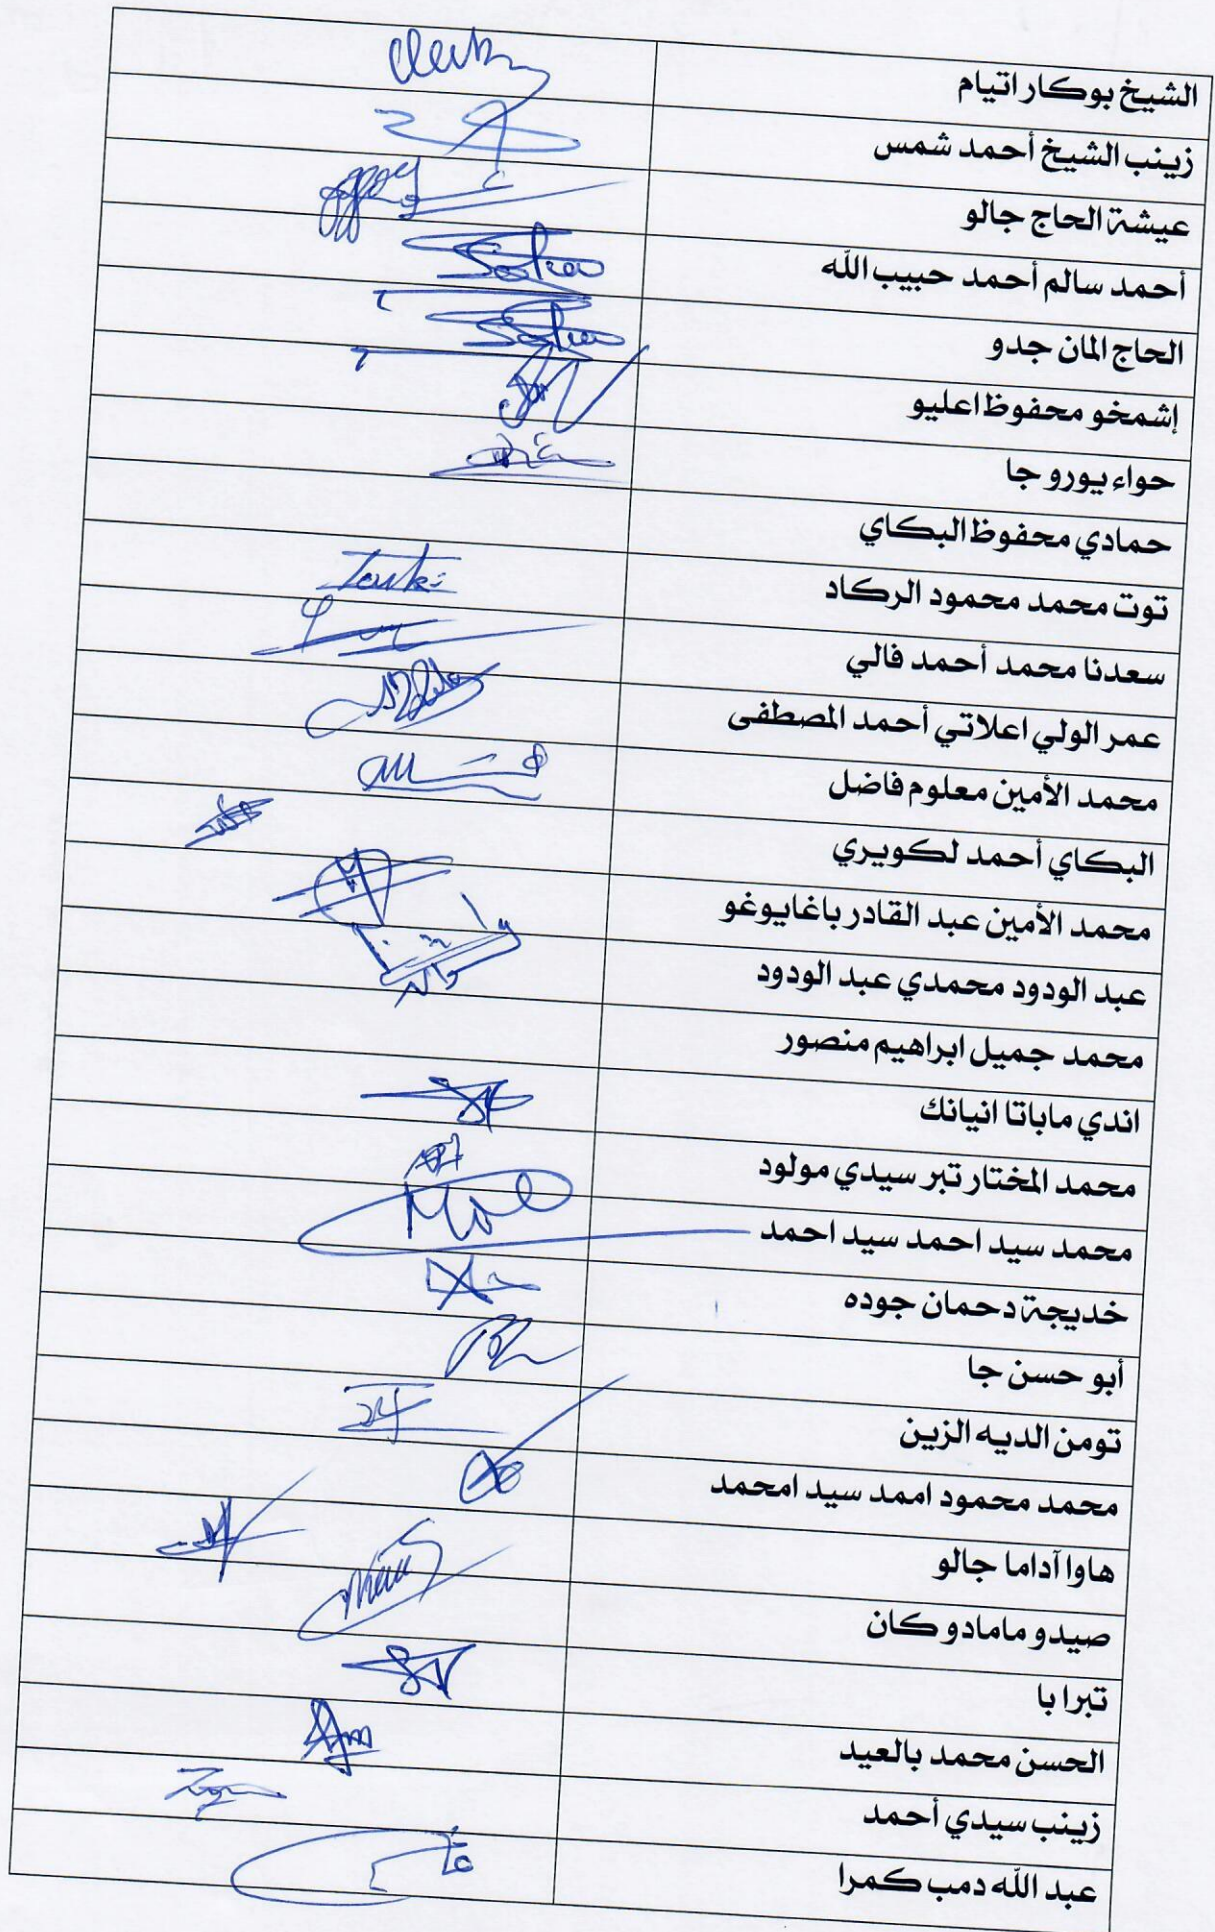 الشيخ بوكار اتيام
زينب الشيخ أحمد شمس
عيشة الحاج جالو
أحمد سالم أحمد حبيب الله
الحاج المان جدو
إشمخو محفوظ اعليو
حواء يورو جا
حمادي محفوظ البكاي
توت محمد محمود الركاد
سعدنا محمد أحمد فالي
عمر الولي اعلاتي أحمد المصطفى
محمد الأمين معلوم فاضل
البكاي أحمد لكويري
محمد الأمين عبد القادر باغايوغو
عبد الودود محمدي عبد الودود
محمد جميل ابراهيم منصور
اندي ماباتا انيانك
محمد المختار تبر سيدي مولود
محمد سيد احمد سيد احمد
خديجة دحمان جوده
أبو حسن جا
تومن الديه الزين
محمد محمود اممد سيد امحمد
هاوا آداما جالو
صيدو مامادو كان
تبرا با
الحسن محمد بالعيد
زينب سيدي أحمد
عبد الله دمب كمرا